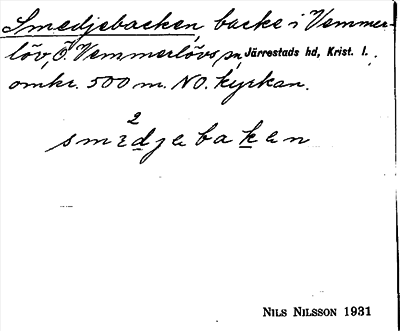 Smedjebacken, backe i Vemmer-
löv, Ö. Vemmerlövs sn, Järrestads hd, Krist. l.,
omkr. 500 m. NO. kyrkan.
2
smedjebaken
NILS NILSSON 1931